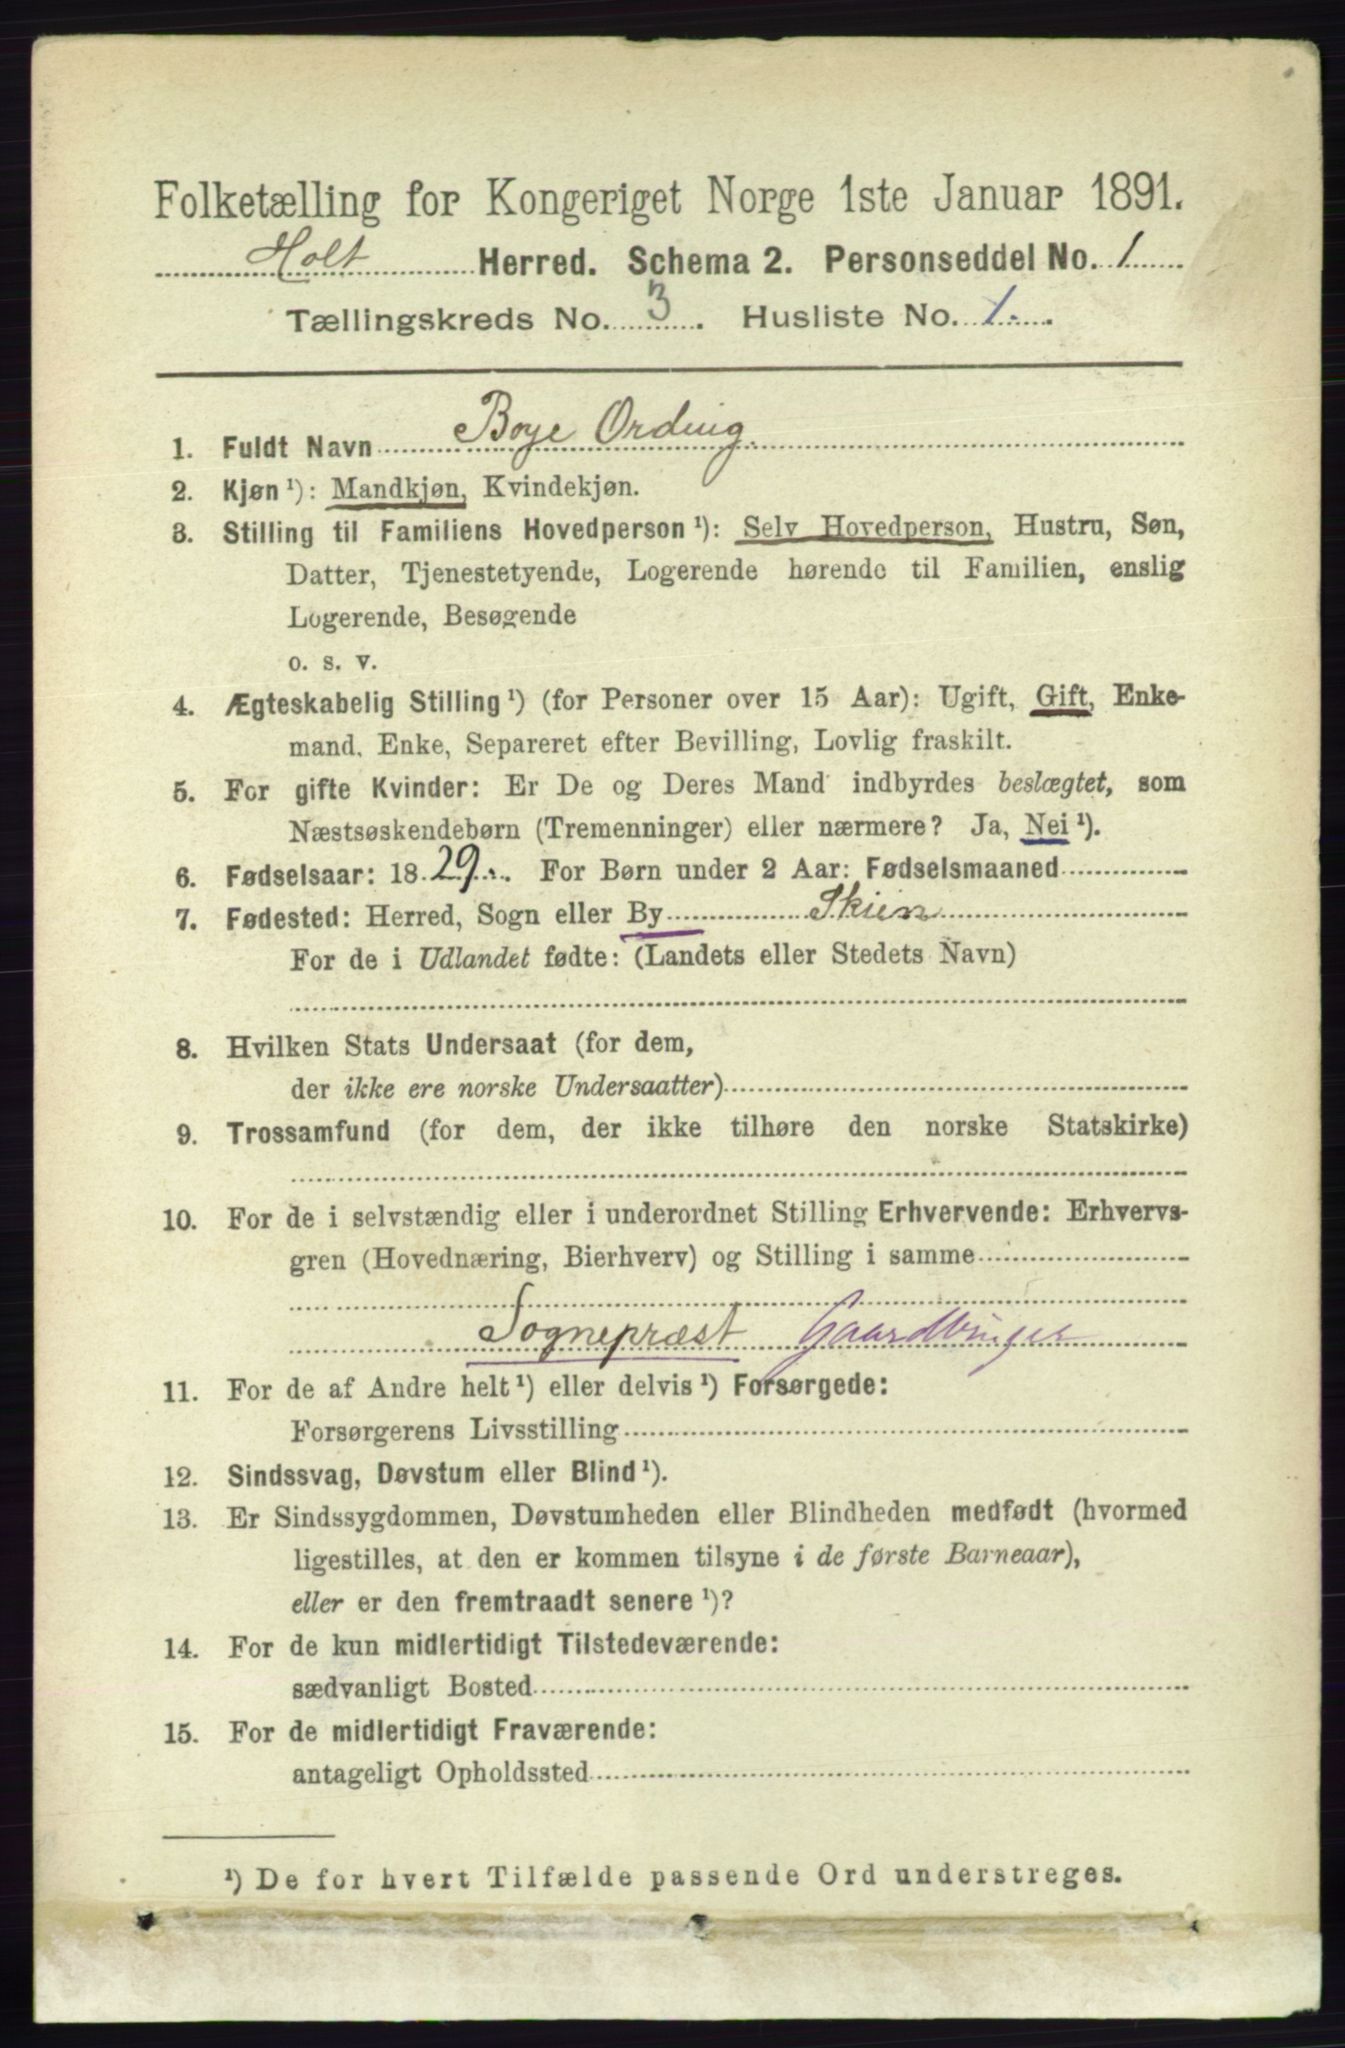 Folketælling for Kongeriget Norge 1ste Januar 1891.
Holt Herred. Schema 2. Personseddel No. 1
Tællingskreds No. 3. Husliste No. 1.
1. Fuldt Navn Boye Ording.
2. Kjøn¹): Mandkjøn, Kvindekjøn.
3. Stilling til Familiens Hovedperson¹): Selv Hovedperson, Hustru, Søn,
Datter, Tjenestetyende, Logerende hørende til Familien, enslig
Logerende, Besøgende
o. s. v.
4. Ægteskabelig Stilling¹) (for Personer over 15 Aar): Ugift, Gift, Enke-
mand, Enke, Separeret efter Bevilling, Lovlig fraskilt.
5. For gifte Kvinder: Er De og Deres Mand indbyrdes beslægtet, som
Næstsøskendebørn (Tremenninger) eller nærmere? Ja, Nei¹).
6. Fødselsaar: 1829. For Børn under 2 Aar: Fødselsmaaned
7. Fødested: Herred, Sogn eller By Skien
For de i Udlandet fødte: (Landets eller Stedets Navn)
8. Hvilken Stats Undersaat (for dem,
der ikke ere norske Undersaatter)
9. Trossamfund (for dem, der ikke tilhøre den norske Statskirke)
10. For de i selvstændig eller i underordnet Stilling Erhvervende: Erhvervs-
gren (Hovednæring, Bierhverv) og Stilling i samme
Sognepræst Gaardbruger
11. For de af Andre helt¹) eller delvis¹) Forsørgede:
Forsørgerens Livsstilling
12. Sindssvag, Døvstum eller Blind¹).
13. Er Sindssygdommen, Døvstumheden eller Blindheden medfødt (hvormed
ligestilles, at den er kommen tilsyne i de første Barneaar),
eller er den fremtraadt senere¹)?
14. For de kun midlertidigt Tilstedeværende:
sædvanligt Bosted
15. For de midlertidigt Fraværende:
antageligt Opholdssted
¹) De for hvert Tilfælde passende Ord understreges.